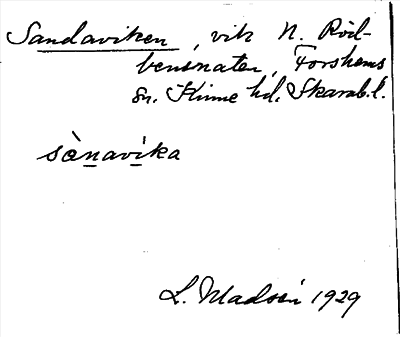 Sandaviken, vik N. Röd-
bensnaten, Forshems
sn. Kinne hd. Skarab.l.
sὰnavika
L. Madsén 1929